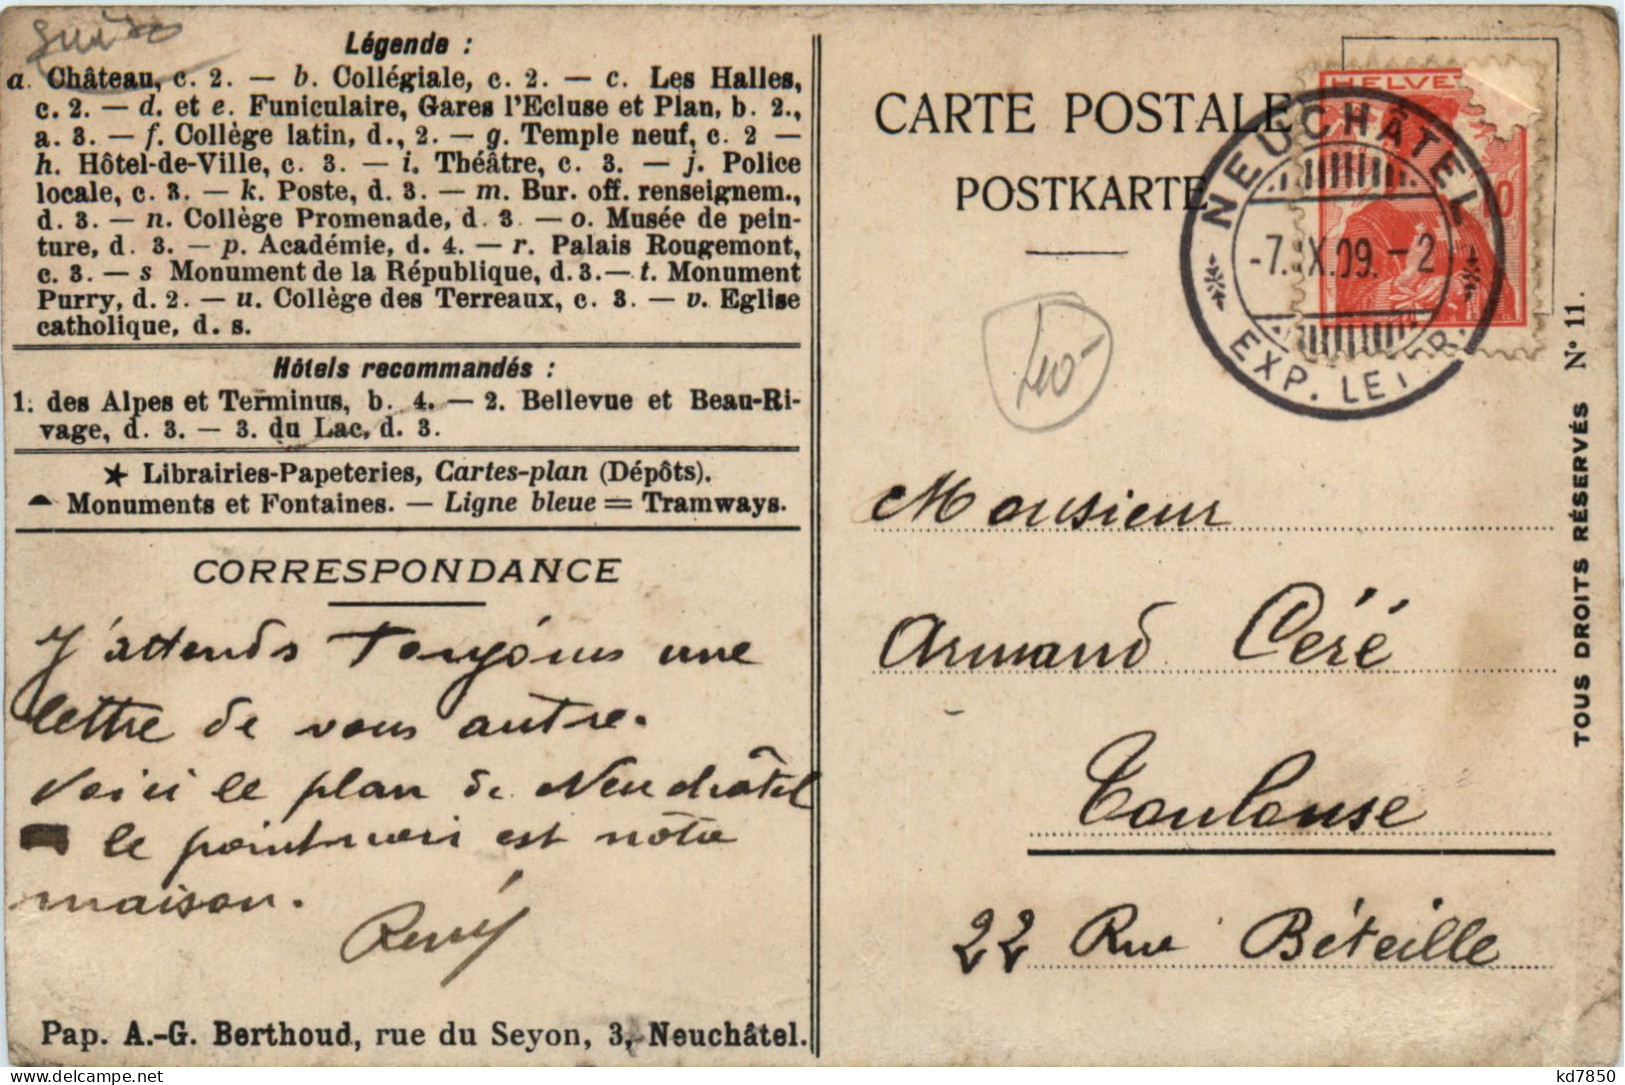 Suisse
Légende :
a. Château, c. 2. — b. Collégiale, c. 2. — c. Les Halles,
c. 2. — d. et e. Funiculaire, Gares l'Ecluse et Plan, b. 2.,
a. 3. — f. Collège latin, d., 2. — g. Temple neuf, c. 2 —
h. Hôtel-de-Ville, c. 3. — i. Théâtre, c. 3. — j. Police
locale, c. 3. — k. Poste, d. 3. — m. Bur. off. renseignem.,
d. 3. — n. Collège Promenade, d. 3 — o. Musée de pein-
ture, d. 3. — p. Académie, d. 4. — r. Palais Rougemont,
c. 3. — s Monument de la République, d. 3. — t. Monument
Purry, d. 2. — u. Collège des Terreaux, c. 3. — v. Eglise
catholique, d. s.
Hôtels recommandés :
1. des Alpes et Terminus, b. 4. — 2. Bellevue et Beau-Ri-
vage, d. 3. — 3. du Lac, d. 3.
★ Librairies-Papeteries, Cartes-plan (Dépôts).
Monuments et Fontaines. — Ligne bleue = Tramways.
CORRESPONDANCE
J'attends Toujours une
lettre de vous autre.
Voici le plan de Neuchâtel
le point noir est notre
maison.
René
Pap. A.-G. Berthoud, rue du Seyon, 3, Neuchâtel.
CARTE POSTALE
POSTKARTE
HELVE
NEUCHÂTEL
-7. X.09.-2
EXP. LETTR.
Monsieur
Armand Céré
Toulouse
22 Rue Béteille
TOUS DROITS RÉSERVÉS N° 11.
kd7850